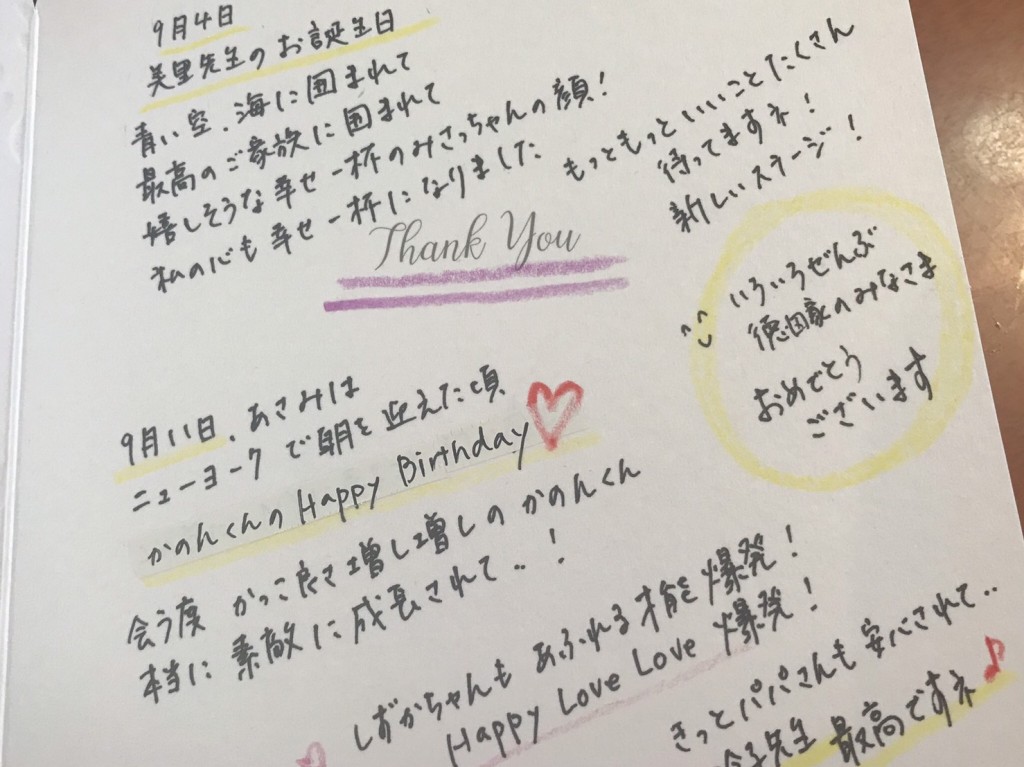 9月4日
美里先生のお誕生日
青い空、海に囲まれて
最高のご家族に囲まれて
嬉しそうな幸せ一杯のみさっちゃんの顔!
私の心も幸せ一杯になりました
もっともっといいことたくさん
待ってますネ!
新しいステージ!
Thank You
いろいろぜんぶ
徳田家のみなさま
おめでとう
ございます
9月11日、あさみは
ニューヨークで朝を迎えた頃
かのんくんのHappy Birthday
会う度 かっこ良さ増し増しのかのんくん
本当に素敵に成長されて..!
しずかちゃんもあふれる才能爆発!
Happy Love Love 爆発!
きっとパパさんも安心されて..
子先生 最高ですネ♪